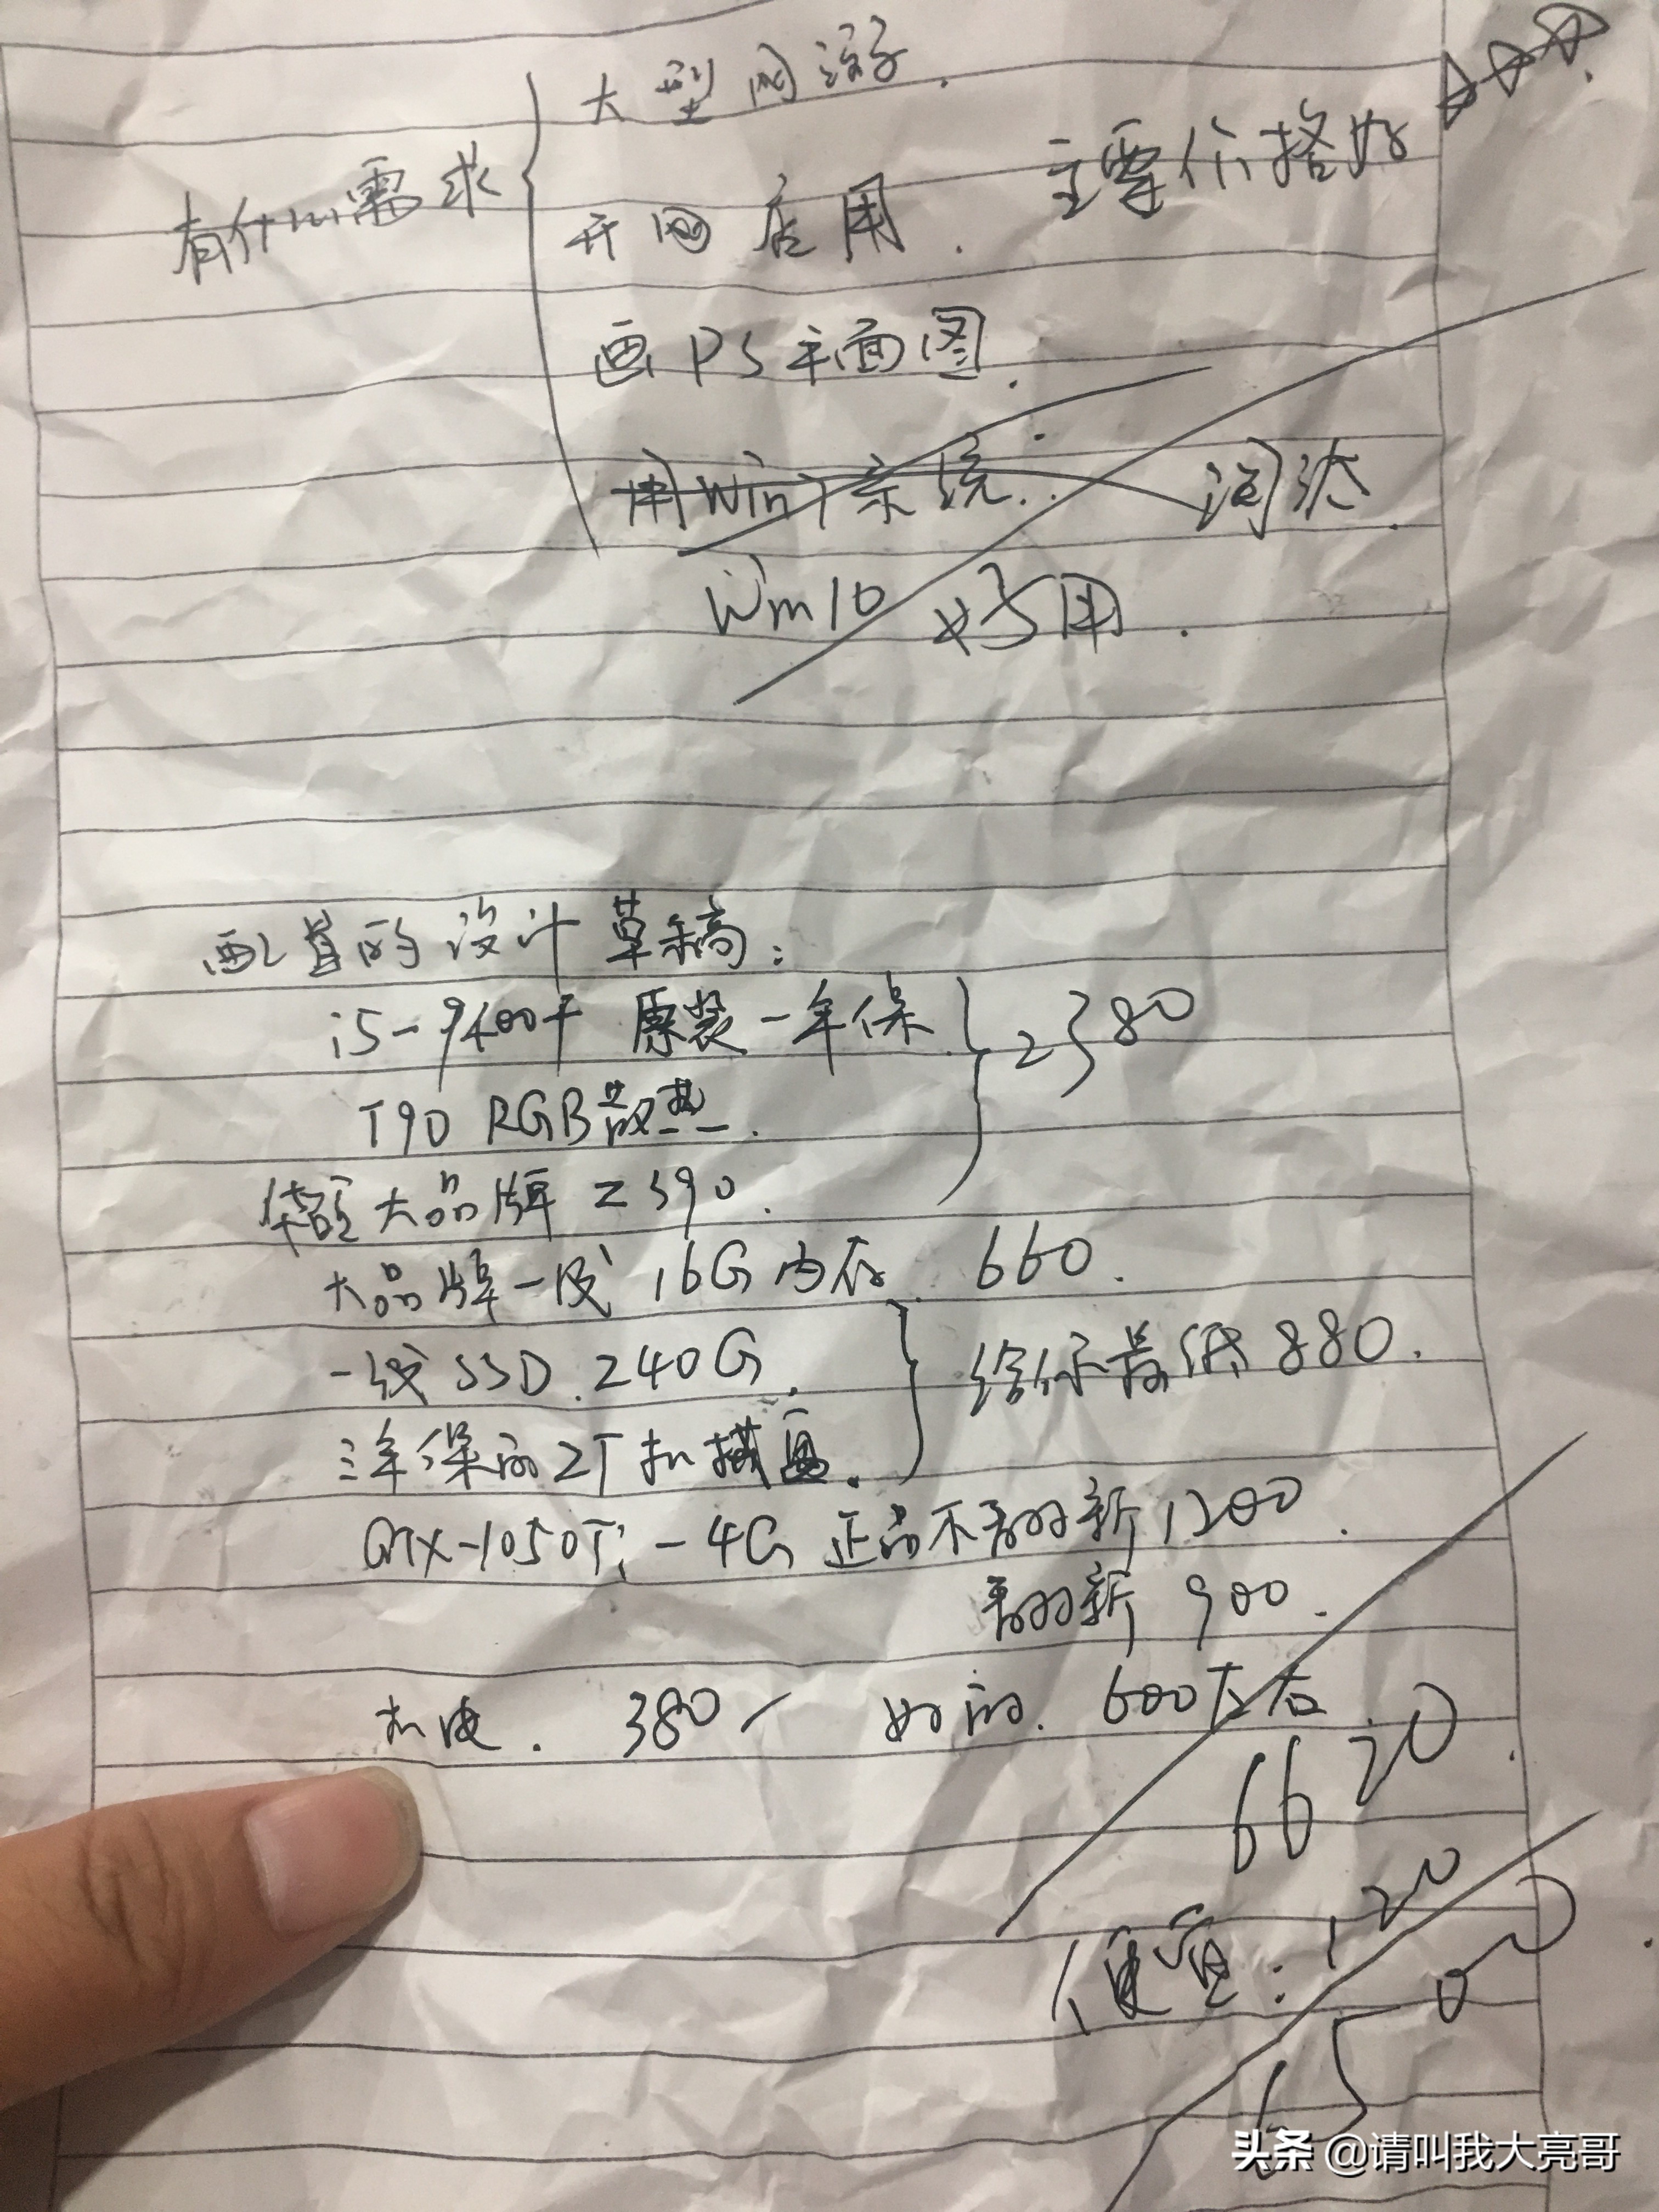 大型网游.
有什么需求
开网店用.
主要价格好
画PS平面图.
用Win7系统..
Win10 好用.
配置的设计草稿:
i5-9400F 原装一年保
2380
T90 RGB散热.
华硕大品牌 Z390.
大品牌一线 16G 内存. 660.
一线 SSD. 240G.
给你最低 880.
三年保的 2T 机械盘.
GTX-1050Ti-4G 正品不翻新 1200.
翻新 900.
机. 380 好的. 600左右.
6620
便宜: 120
6500
头条 @请叫我大亮哥